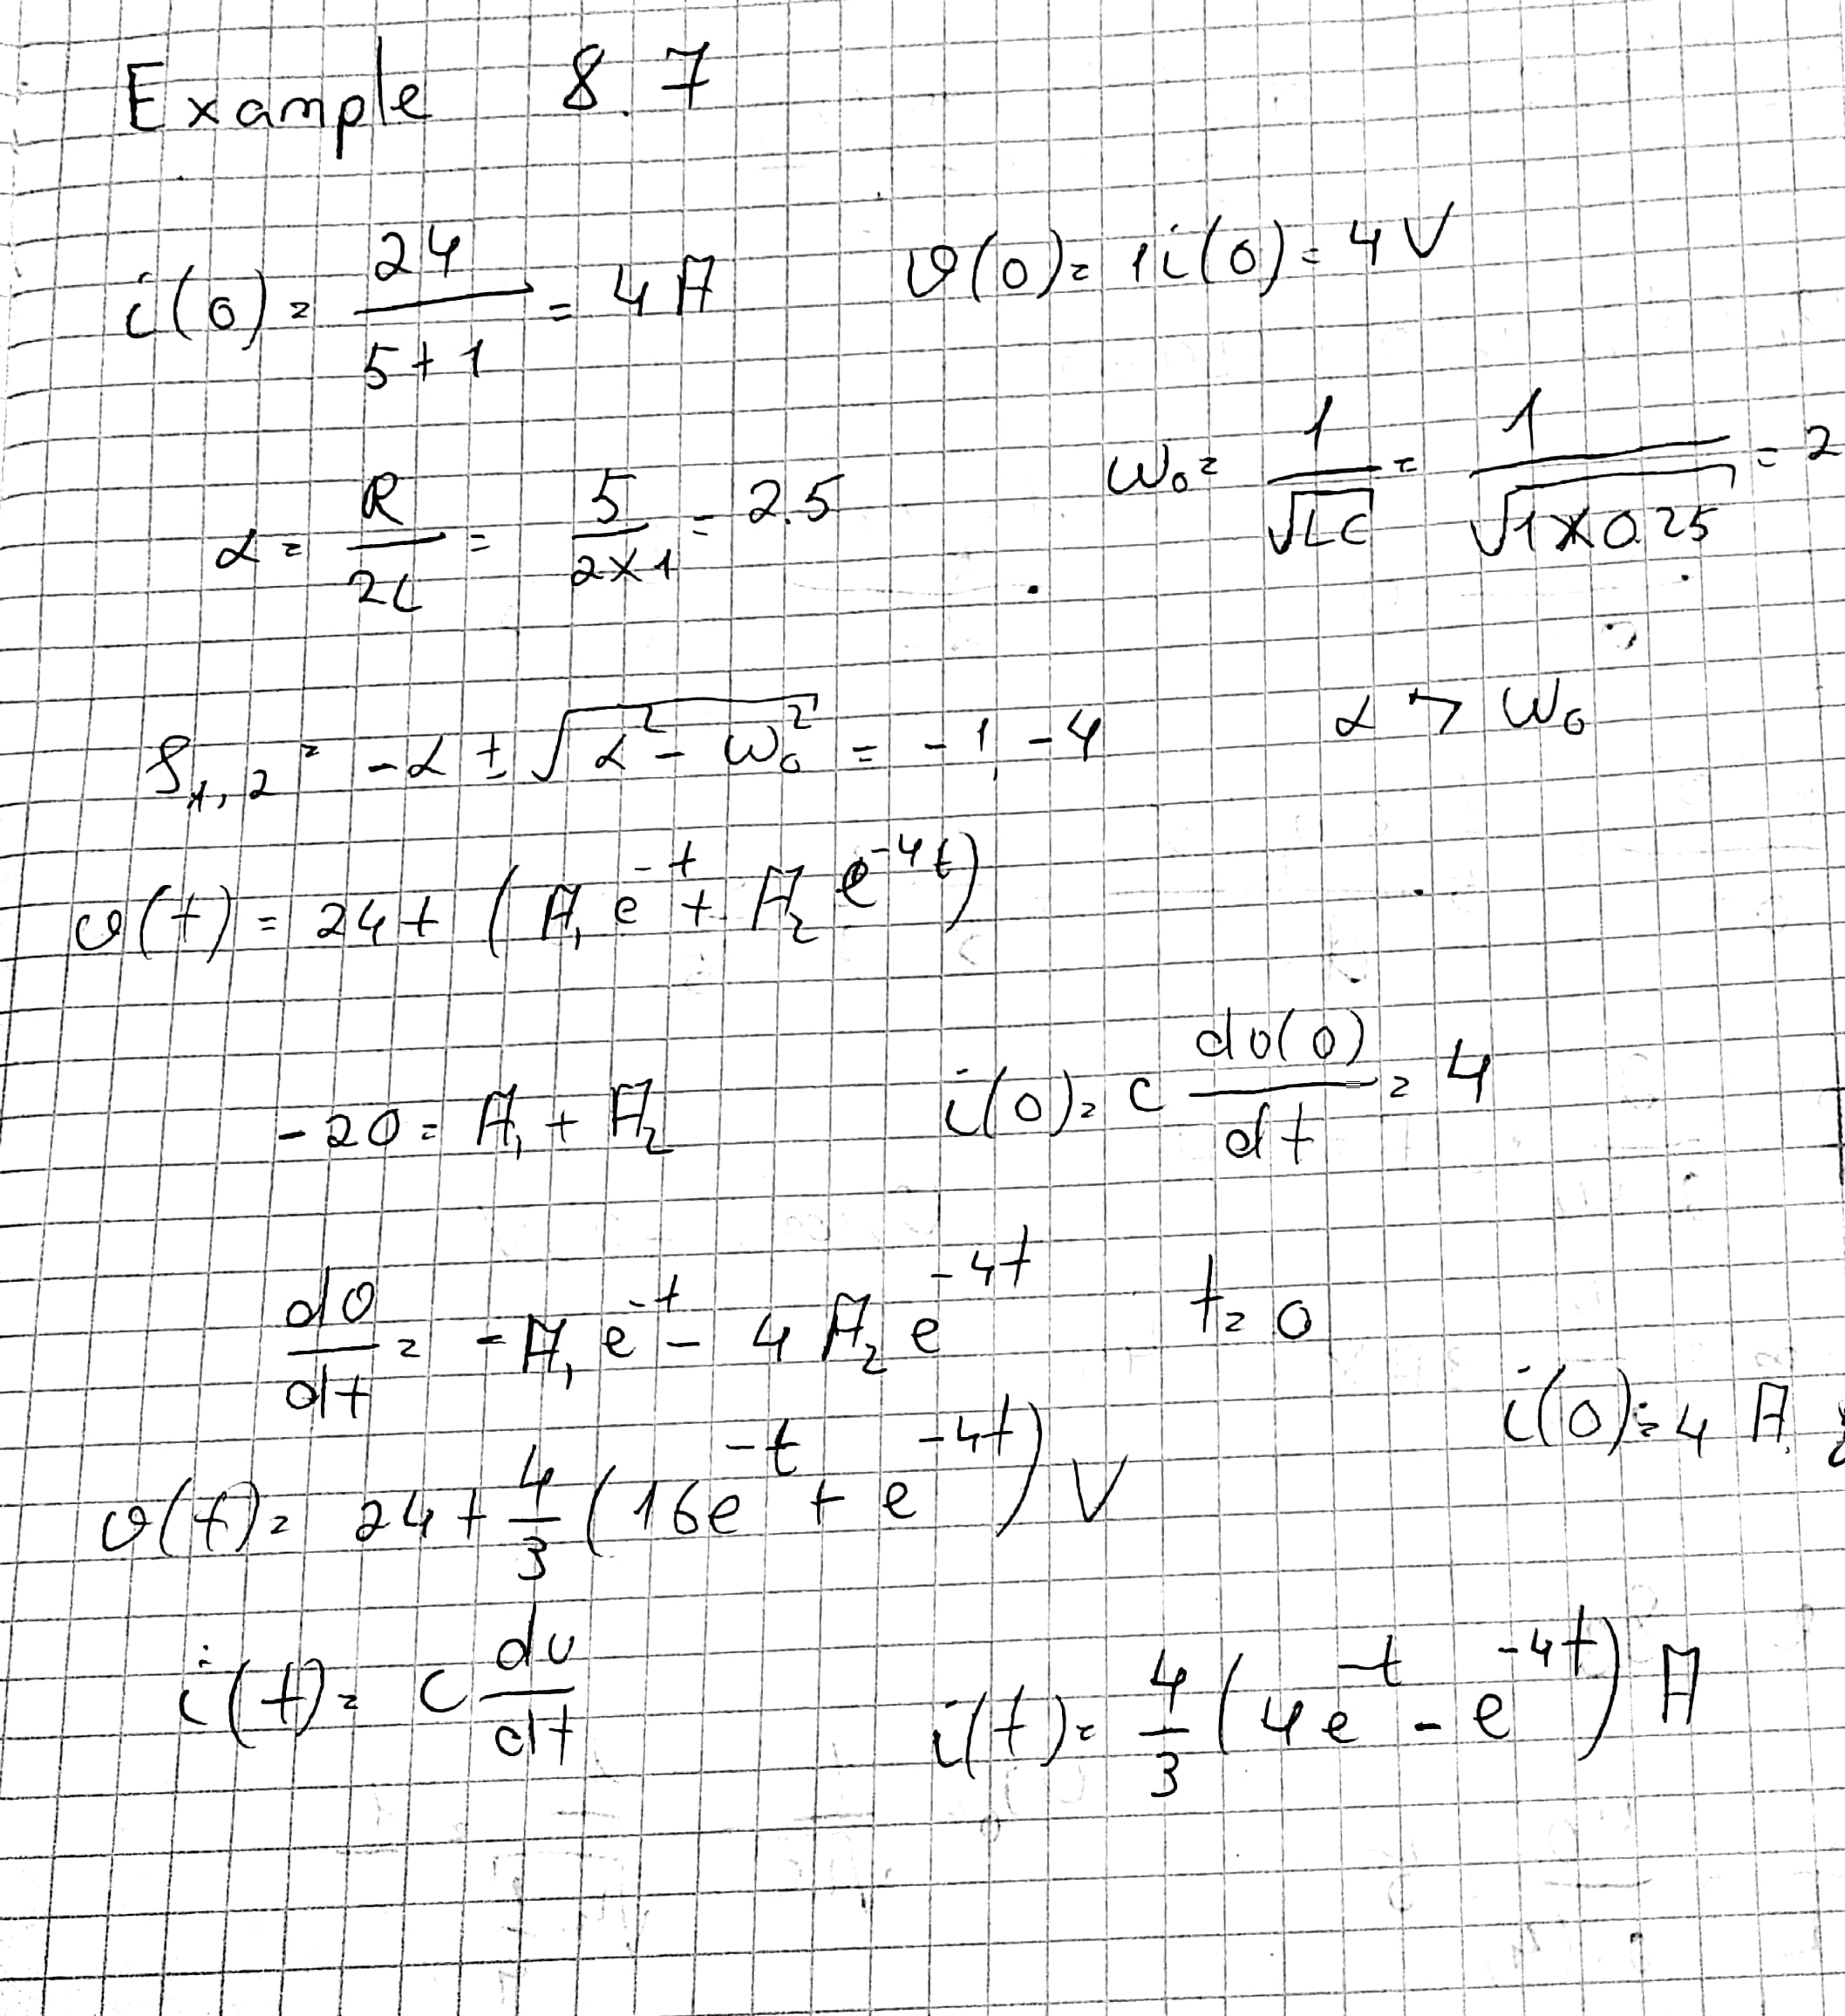 Example 8.7
i(0) = 24/(5+1) = 4 A    v(0) = 1i(0) = 4 V
α = R/2L = 5/(2×1) = 2.5    ω₀ = 1/√LC = 1/√(1×0.25) = 2
S₁,₂ = -α ± √(α² - ω₀²) = -1, -4    α > ω₀
v(t) = 24 + (A₁ e^-t + A₂ e^-4t)
-20 = A₁ + A₂    i(0) = C dv(0)/dt = 4
dv/dt = -A₁ e^-t - 4 A₂ e^-4t    t = 0
i(0) = 4 A
v(t) = 24 + 4/3 (16e^-t + e^-4t) V
i(t) = C dv/dt    i(t) = 4/3 (4e^-t - e^-4t) A